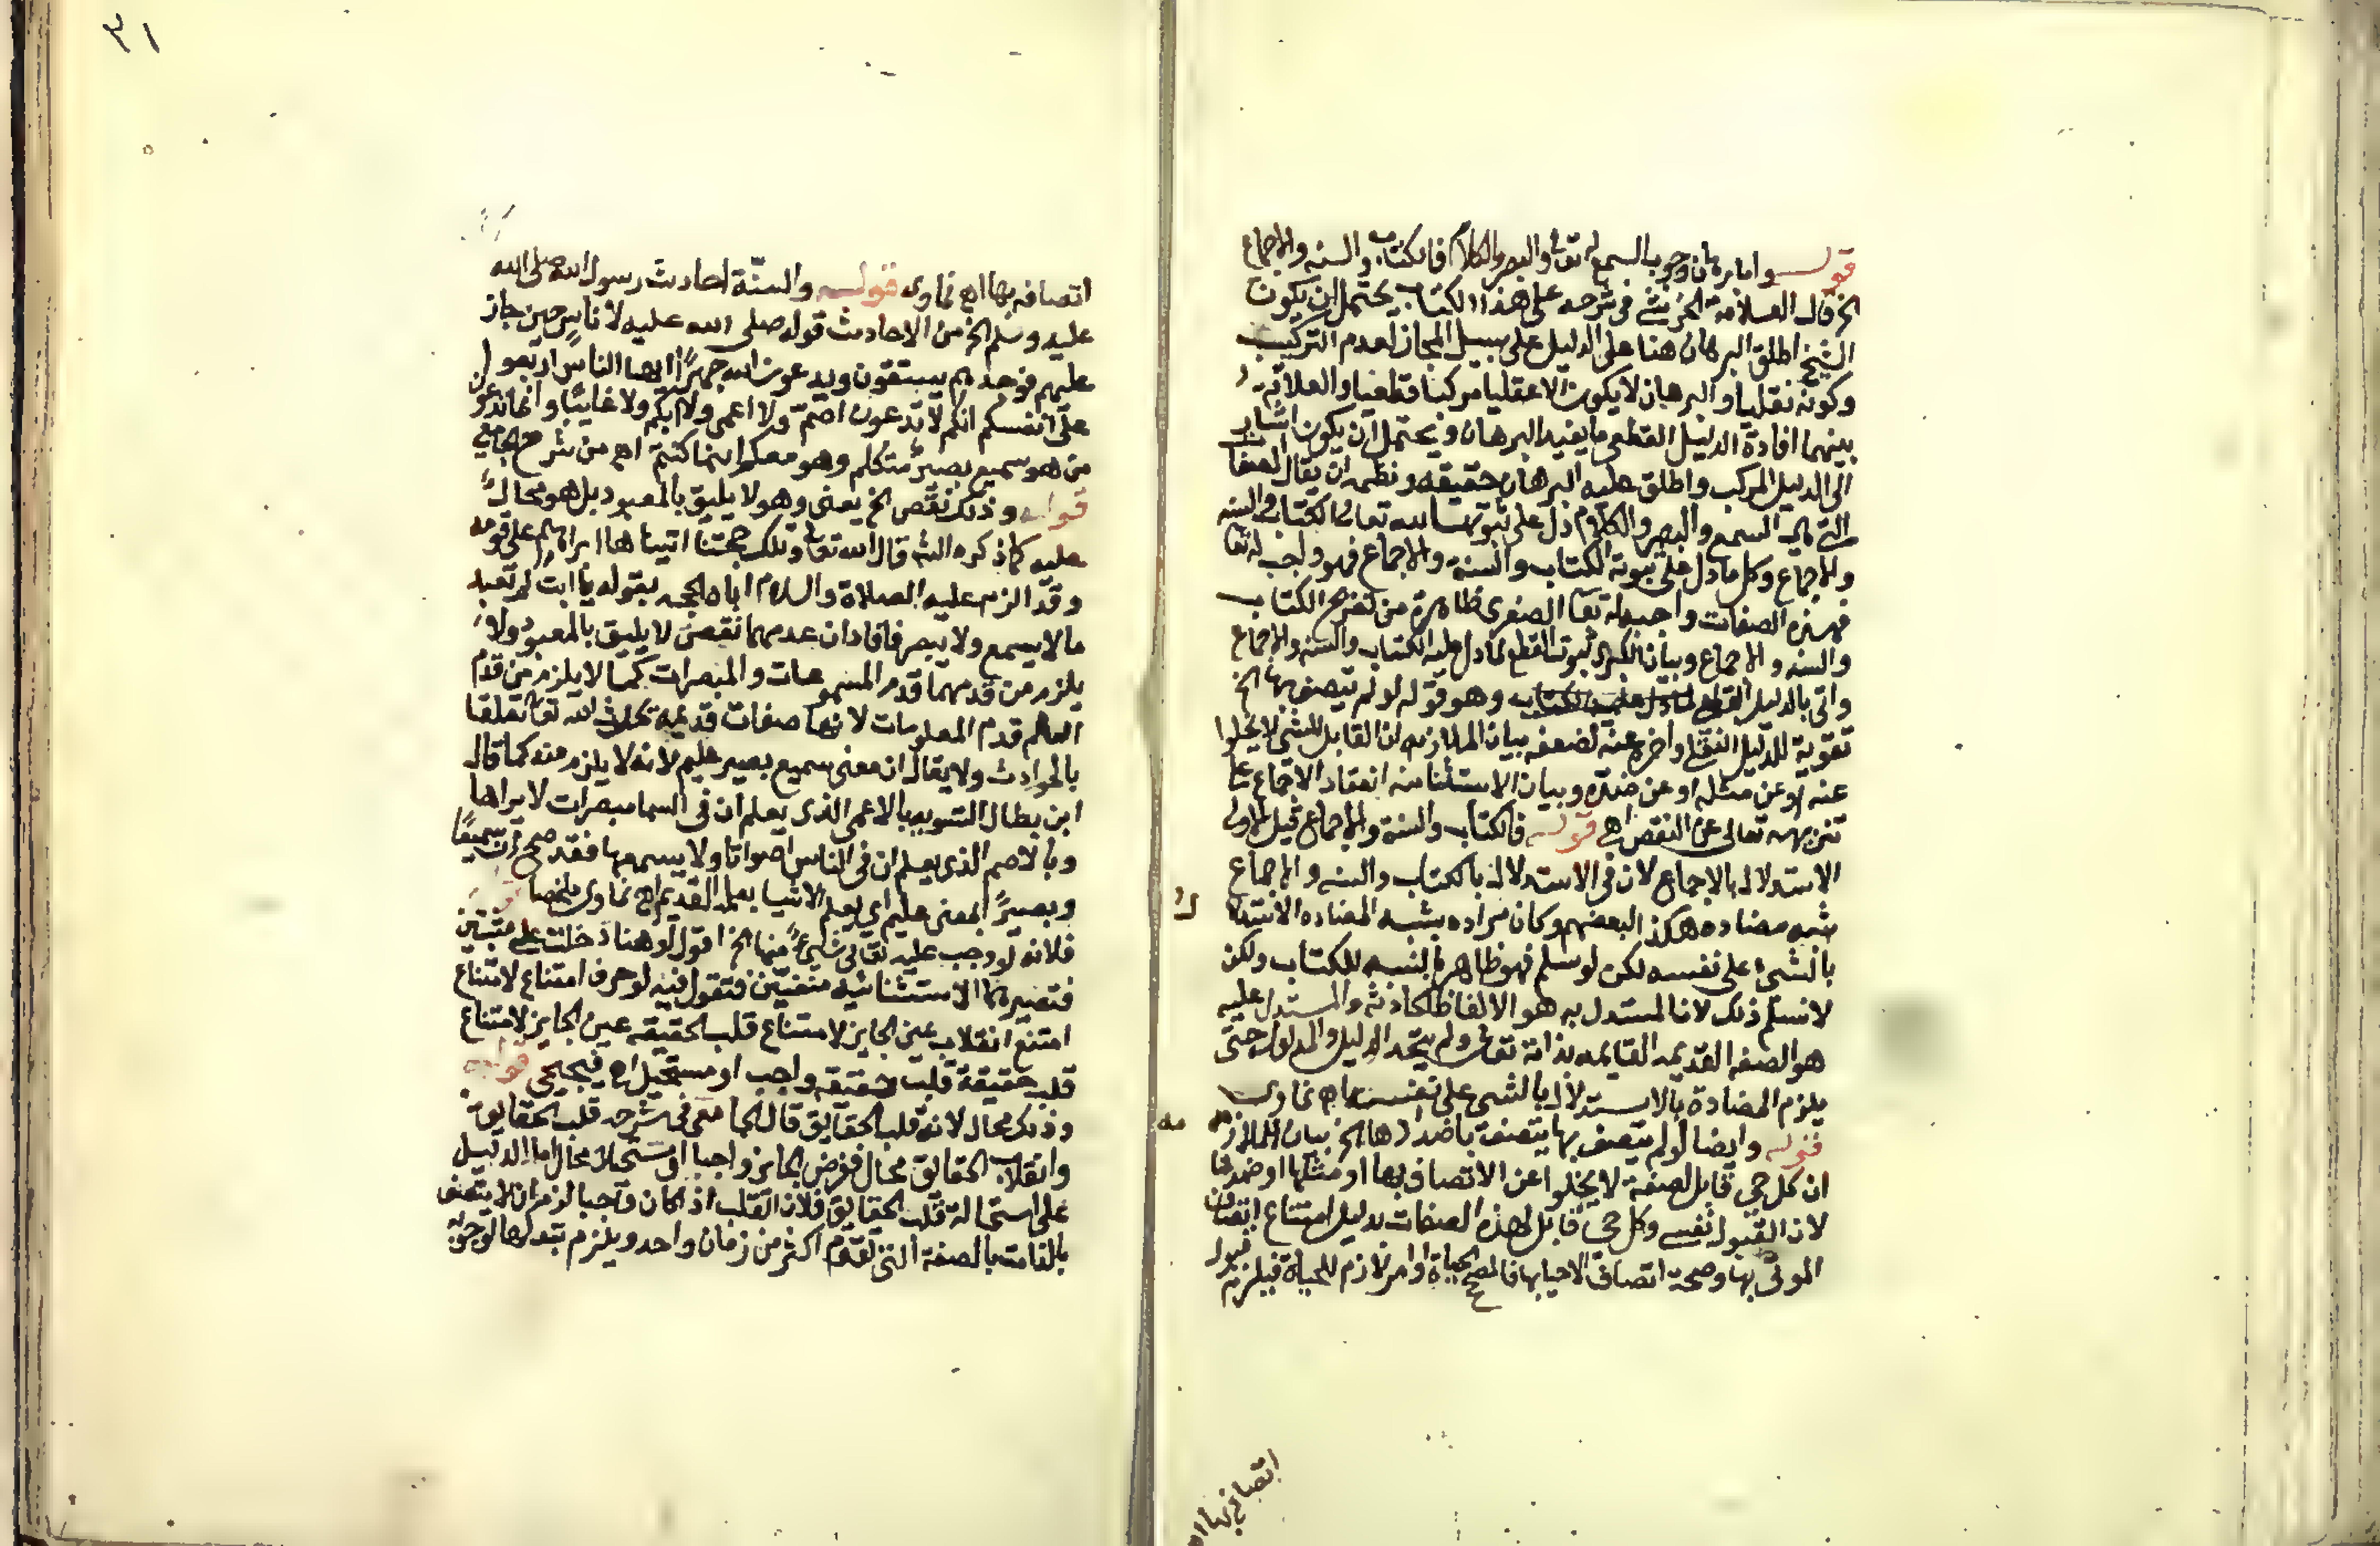 قوله واما برهان وجوب السمع له تعا والبصر والكلام فالكتاب والسنه والاجماع
الخ قال العلامة الخرشي في شرحه على هذا الكتاب يحتمل ان يكون
الشيخ اطلق البرهان هنا على الدليل على سبيل المجاز لعدم التركيب
وكونه نقليا والبرهان لا يكون الا عقليا مركبا قطعيا والعلاقة
بينهما افادة الدليل القطعي ما يفيد البرهان ويحتمل ان يكون اشار
الى الدليل المركب واطلق عليه البرهان حقيقه ونظمه ان يقال الصفا
التي هي السمع والبصر والكلام دل على ثبوتها لله تعالى الكتاب والسنه
والاجماع وكل ما دل على ثبوته الكتاب والسنة والاجماع فهو واجب له تعا
فهذه الصفات واجبه له تعا الصغرى ظاهرة من تصريح الكتاب
والسنه والاجماع وبيان الكبرى ثبوت القطع لما دل عليه الكتاب والسنه والاجماع
واتى بالدليل العقلي وهو قوله لو لم يتصف بها الخ
تقوية للدليل النقلي واخره عنه لضعفه بيان الملازمه ان القابل للشي لا يخلوا
عنه او عن مثله او عن ضده وبيان الاستثنائيه انعقاد الاجماع على
تنزيهه تعالى عن النقص اهـ قوله فالكتاب والسنة والاجماع قيل الاولى
الاستدلال بالاجماع لان في الاستدلال بالكتاب والسنه والاجماع
شبه مضاده هكذا لبعضهم وكان مراده بشبه المضاده الاستدلال
بالشيء على نفسه لكن لو سلم فهو ظاهر بالنسبه للكتاب ولكن
لا نسلم ذلك لان المستدل به هو الالفاظ الحادثه والمستدل عليه
هو الصفه القديمه القايمه بذاته تعالى ولم يتحد الدليل والمدلول حتى
يلزم المضادة بالاستدلال بالشي على نفسه اهـ غماوى
قوله وايضا لو لم يتصف بها يتصف باضدادها الخ بيان الملازمه
ان كل حي قابل لصفة لا يخلوا عن الاتصاف بها او مثلها او ضدها
لان القبول نفسي وكل حي قابل لهذه الصفات بدليل امتناع اتصاف
الموتى بها وصحة اتصاف الاحيا بها فالمصحح الحياة او امر لازم للحياة فيلزم قبول
اتصافه بها اهـ
اتصافه بها اهـ غماوى قوله والسنّة احاديث رسول الله صلى الله
عليه وسلم الخ من الاحاديث قوله صلى الله عليه لاناس حين جاز
عليهم فوجدهم يستقون ويدعون الله جهرًا ايها الناس اربعوا
على انفسكم انكم لا تدعون اصم ولا اعمى ولا ابكم ولا غايبًا وانما تدعون
من هو سميع بصير متكلم وهو معكم اينما كنتم اهـ من شرح الجامع
قوله وذلك نقص الخ يعنى وهو لا يليق بالمعبود بل هو محال
عليه كما ذكره الش قال الله تعا وتلك حجتنا اتيناها ابراهيم على قومه
وقد الزم عليه الصلاة والسلام اباه الحجه بقوله يا ابت لم تعبد
ما لا يسمع ولا يبصر فافاد ان عدمهما نقص لا يليق بالمعبود ولا
يلزم من قدمهما قدم المسموعات والمبصرات كما لا يلزم من قدم
العلم قدم المعلومات لانها صفات قديمة يحدث الله تعا تعلقا
بالحوادث ولا يقال ان معنى سميع بصير عليم لانه لا يلزم منه كما قال
ابن بطال التسويه بالاعمى الذى يعلم ان في السما مبصرات لا يراها
وبالاصم الذى يعلم ان فى الناس اصواتا ولا يسمعها فقد صح ان سميعًا
وبصيرًا بمعنى عليم اي يعلم الاشيا بعلمه القديم اهـ غماوى ملخصا قوله
فلانه لو وجب عليه تعالى شيءٌ منها الخ اقول لو هنا دخلت على مثبتين
فتصيرهما الاستثنائيه منفيّين فتقول فيه لو حرف امتناع لامتناع
امتنع انقلاب عين الجايز لامتناع قلب الحقيقه عين الجايز لامتناع
قلب حقيقة قلبت حقيقه واجب او مستحيل اهـ فيجيجي قوله
وذلك محال لانه قلب الحقايق قال الجامعى فى شرحه قلب الحقايق
وانقلاب الحقايق محال ففرض الجايز واجبا او مستحيلا محال اما الدليل
على استحالة قلب الحقايق فلان القلب اذ كان واجبا لزم ان لا يتصف
بالذات بالصفة التى تقوم اكثر من زمان واحد ويلزم تبدلها لوجوبه